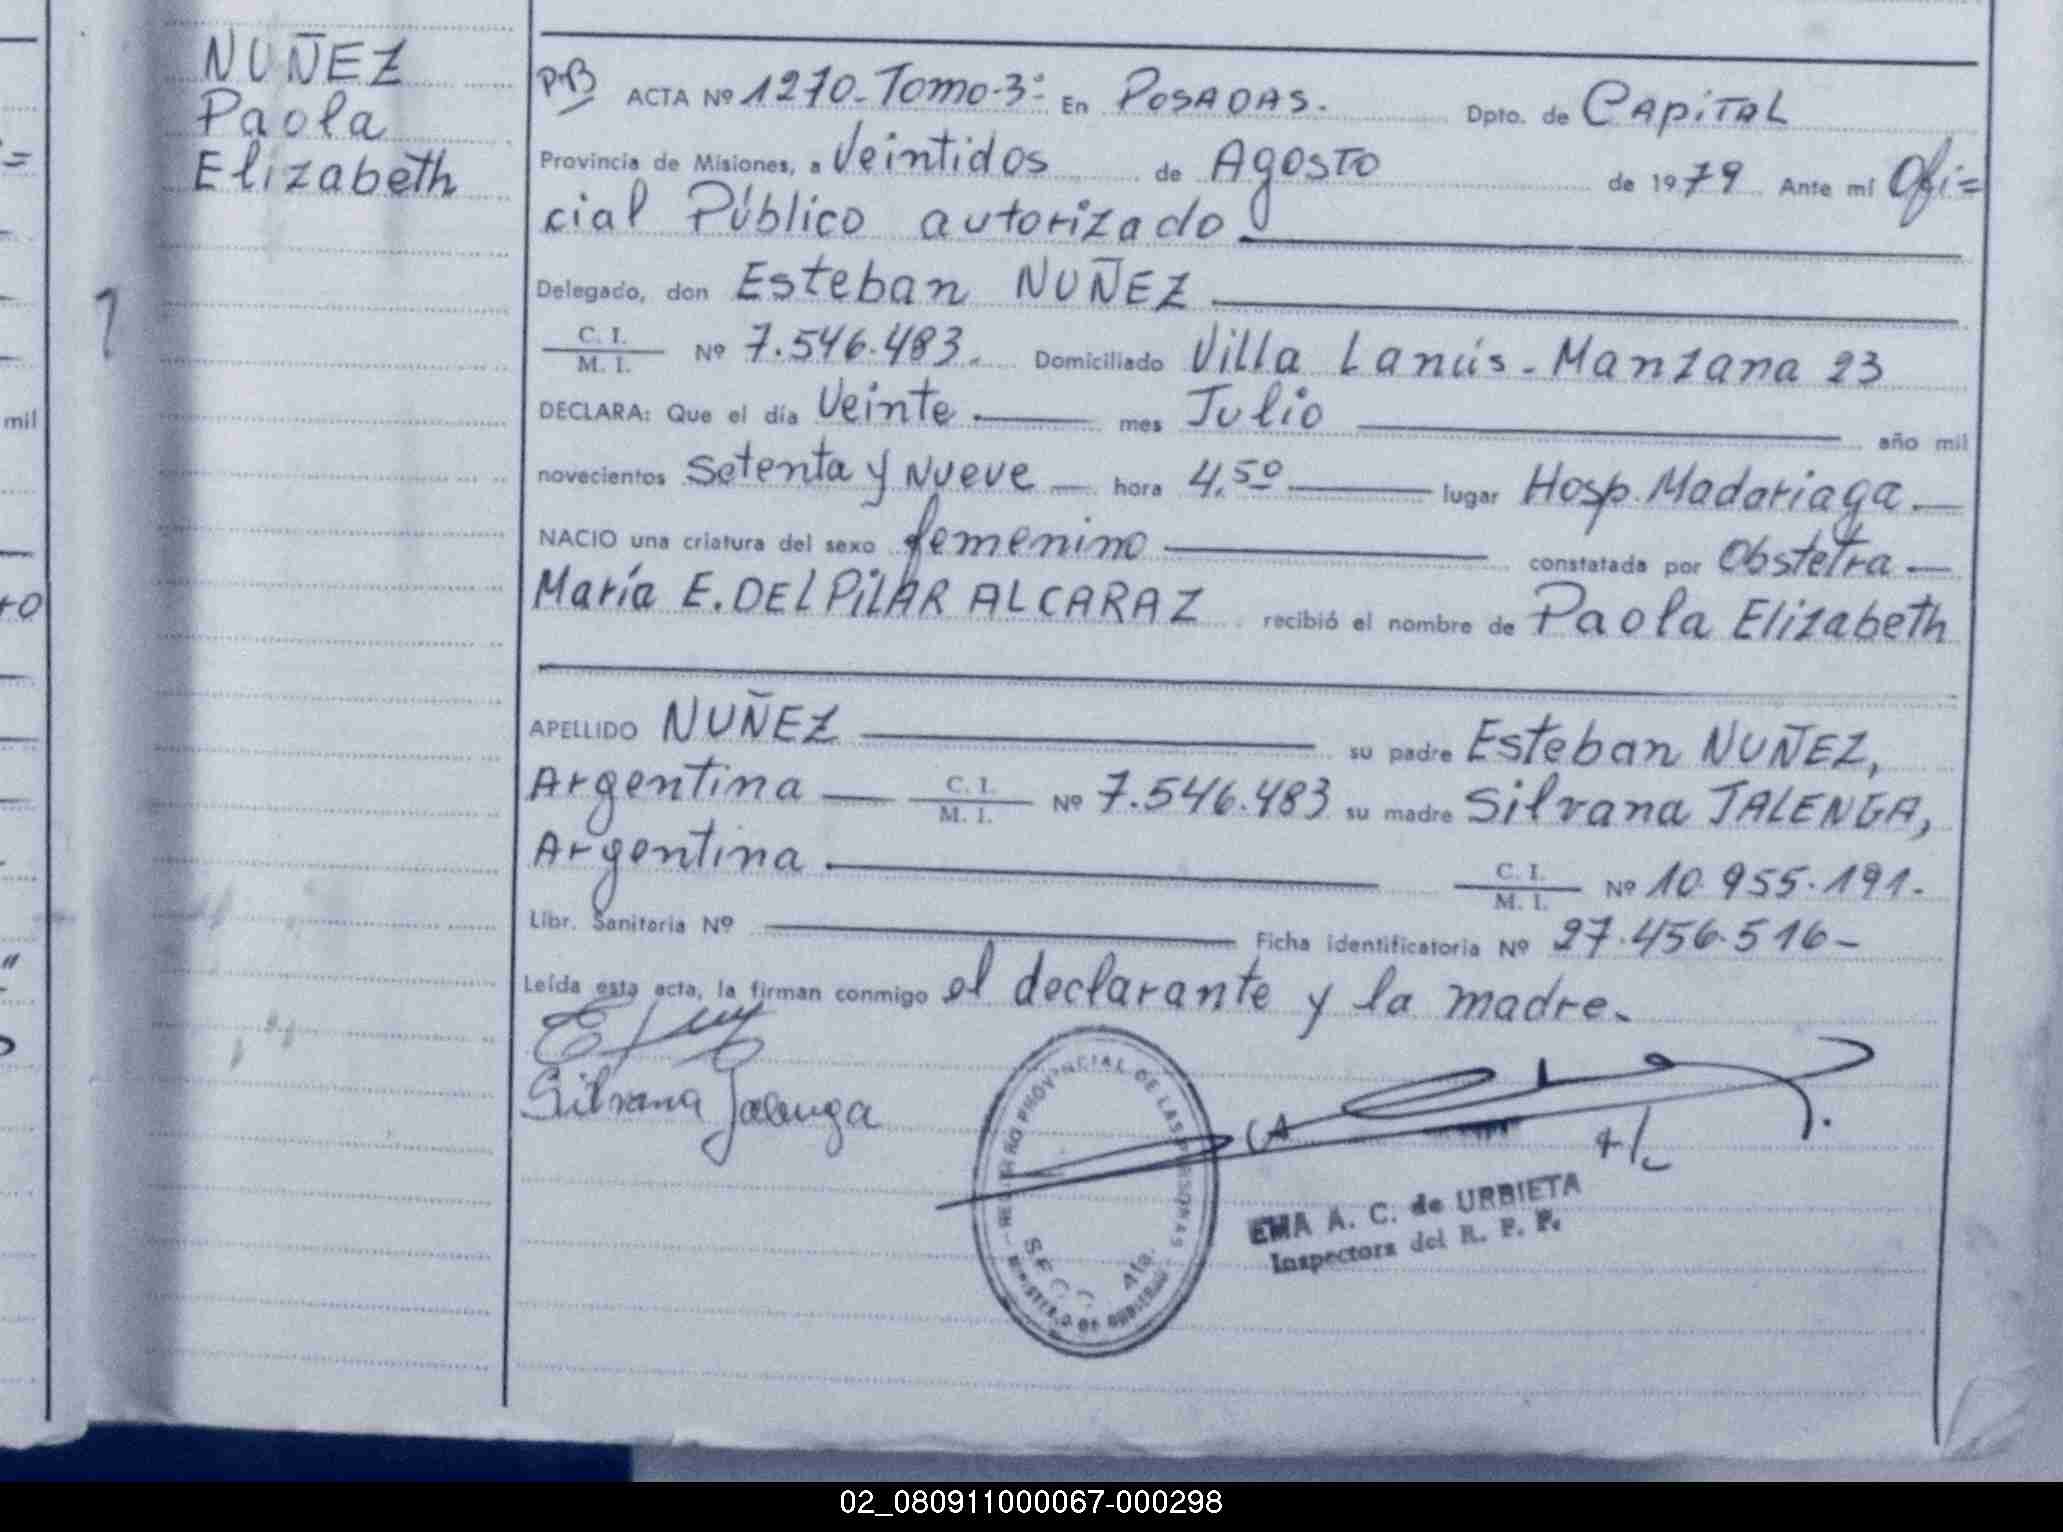 NUÑEZ
Paola
Elizabeth
ACTA Nº 1270-Tomo-3º En POSADAS. Dpto. de CAPITAL
Provincia de Misiones, a Veintidos de Agosto de 1979 Ante mí Ofi=
cial Público autorizado
Delegado, don Esteban NUÑEZ
C. I.
M. I. Nº 7.546.483. Domiciliado Villa Lanús - Manzana 23
DECLARA: Que el día Veinte mes Julio año mil
novecientos Setenta y Nueve hora 4,50 lugar Hosp. Madariaga
NACIO una criatura del sexo femenino constatada por Obstetra
María E. DEL PILAR ALCARAZ recibió el nombre de Paola Elizabeth
APELLIDO NUÑEZ su padre Esteban NUÑEZ,
Argentina C. I. M. I. Nº 7.546.483 su madre Silvana JALENGA,
Argentina C. I. M. I. Nº 10.955.191.
Libr. Sanitaria Nº Ficha identificatoria Nº 27.456.516-
Leída esta acta, la firman conmigo el declarante y la madre.
Silvana Jalenga
REGISTRO PROVINCIAL DE LAS PERSONAS
MINISTERIO DE GOBIERNO
EMA A. C. de URBIETA
Inspectora del R. P. P.
mil
02_080911000067-000298